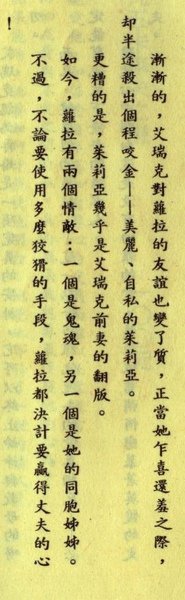 漸漸的，艾瑞克對蘿拉的友誼也變了質，正當她乍喜還羞之際，
却半途殺出個程咬金——美麗、自私的茱莉亞。
更糟的是，茱莉亞幾乎是艾瑞克前妻的翻版。
如今，蘿拉有兩個情敵：一個是鬼魂，另一個是她的同胞姊姊。
不過，不論要使用多麼狡猾的手段，蘿拉都決計要贏得丈夫的心
！